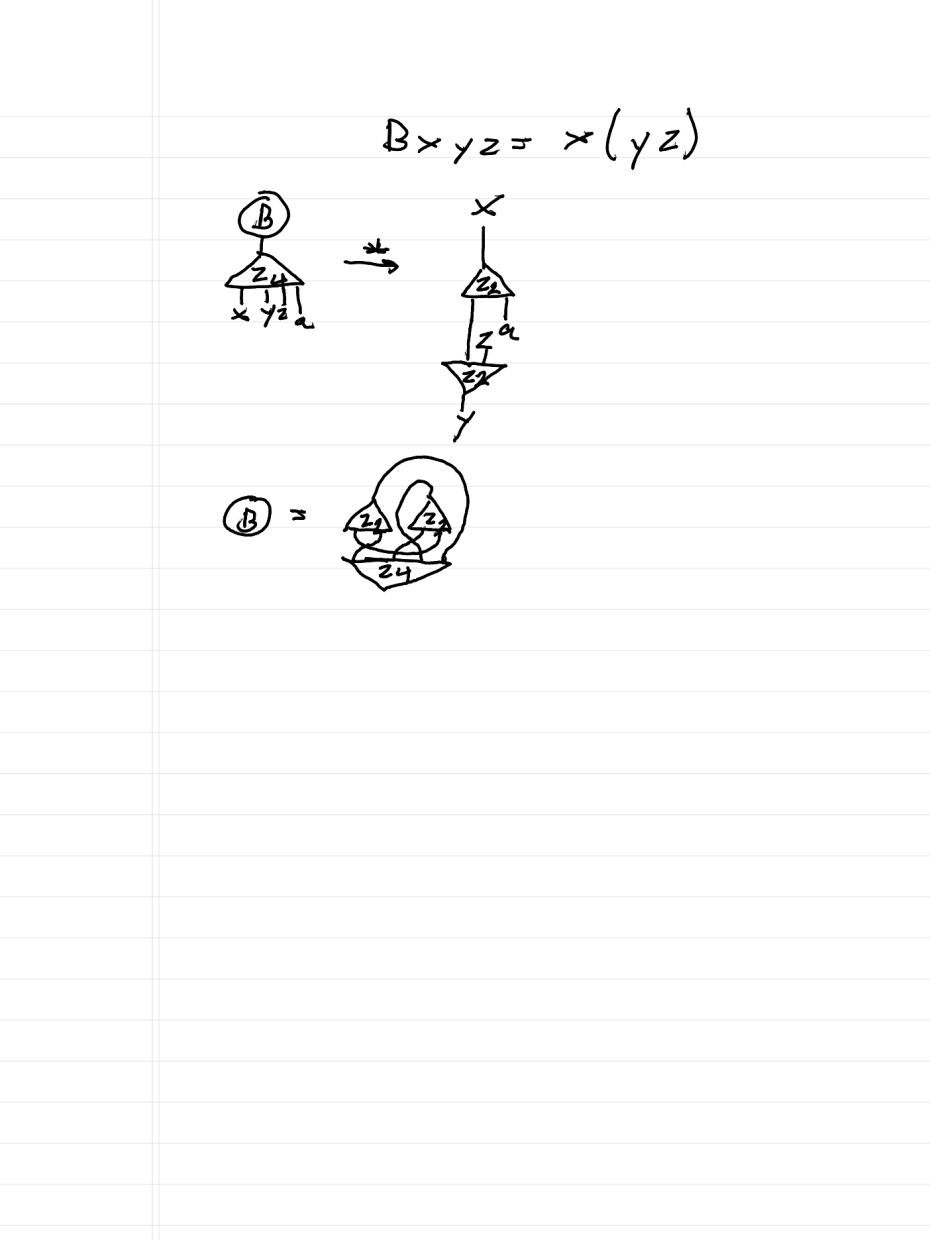 Bxyz = x(yz)
B
Z4
x y z a
*
x
Z2
a
z
Z2
y
B =
Z2 Z2
Z4